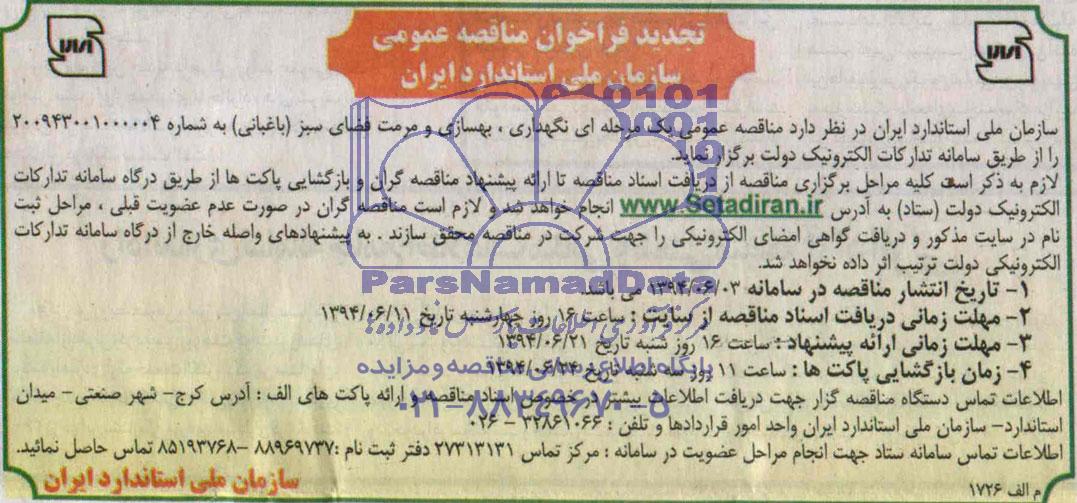 تجدید فراخوان مناقصه عمومی
سازمان ملی استاندارد ایران
سازمان ملی استاندارد ایران در نظر دارد مناقصه عمومی یک مرحله ای نگهداری ، بهسازی و مرمت فضای سبز (باغبانی) به شماره ۲۰۰۹۴۳۰۰۱۰۰۰۰۰۴
را از طریق سامانه تدارکات الکترونیک دولت برگزار نماید.
لازم به ذکر است کلیه مراحل برگزاری مناقصه از دریافت اسناد مناقصه تا ارائه پیشنهاد مناقصه گران و بازگشایی پاکت ها از طریق درگاه سامانه تدارکات
الکترونیک دولت (ستاد) به آدرس www.Setadiran.ir انجام خواهد شد و لازم است مناقصه گران در صورت عدم عضویت قبلی ، مراحل ثبت
نام در سایت مذکور و دریافت گواهی امضای الکترونیکی را جهت شرکت در مناقصه محقق سازند . به پیشنهادهای واصله خارج از درگاه سامانه تدارکات
الکترونیکی دولت ترتیب اثر داده نخواهد شد.
۱- تاریخ انتشار مناقصه در سامانه ۱۳۹۴/۰۶/۰۳ می باشد.
۲- مهلت زمانی دریافت اسناد مناقصه از سایت : ساعت ۱۶ روز چهارشنبه تاریخ ۱۳۹۴/۰۶/۱۱
۳- مهلت زمانی ارائه پیشنهاد : ساعت ۱۶ روز شنبه تاریخ ۱۳۹۴/۰۶/۲۱
۴- زمان بازگشایی پاکت ها : ساعت ۱۱ روز سه شنبه تاریخ ۱۳۹۴/۰۶/۲۴
اطلاعات تماس دستگاه مناقصه گزار جهت دریافت اطلاعات بیشتر در خصوص اسناد مناقصه و ارائه پاکت های الف : آدرس کرج- شهر صنعتی- میدان
استاندارد- سازمان ملی استاندارد ایران واحد امور قراردادها و تلفن : ۳۲۸۶۱۰۶۶ - ۰۲۶
اطلاعات تماس سامانه ستاد جهت انجام مراحل عضویت در سامانه : مرکز تماس ۲۷۳۱۳۱۳۱ دفتر ثبت نام : ۸۸۹۶۹۷۳۷- ۸۵۱۹۳۷۶۸ تماس حاصل نمائید.
سازمان ملی استاندارد ایران
م الف ۱۷۲۶
ParsNamadData
پایگاه اطلاع رسانی مناقصه و مزایده
۰۲۱-۸۸۳۴۹۶۷۰-۵